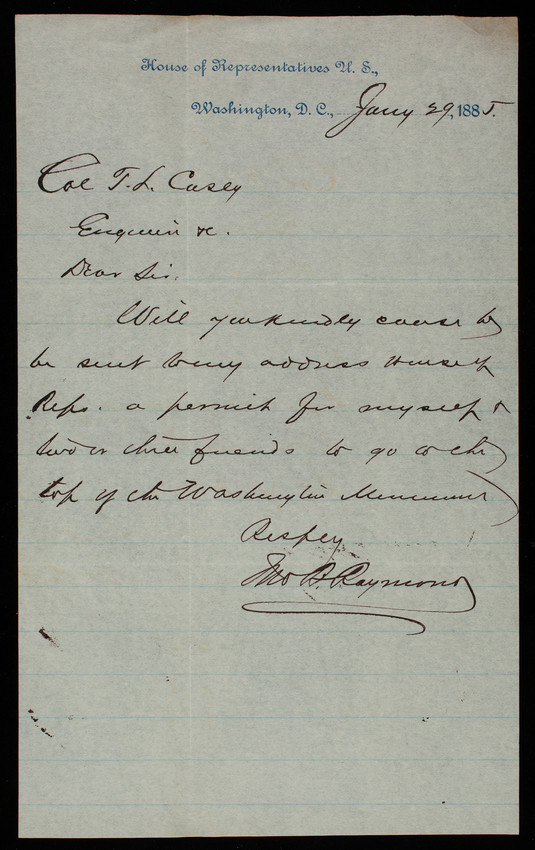 House of Representatives U. S.,
Washington, D. C., Jany 29, 1885.
Col T. L. Casey
Engineer &c.
Dear Sir.
Will you kindly cause to
be sent to my address House of
Reps. a permit for myself &
two or three friends to go to the
top of the Washington Monument
Respy
Jno B. Raymond